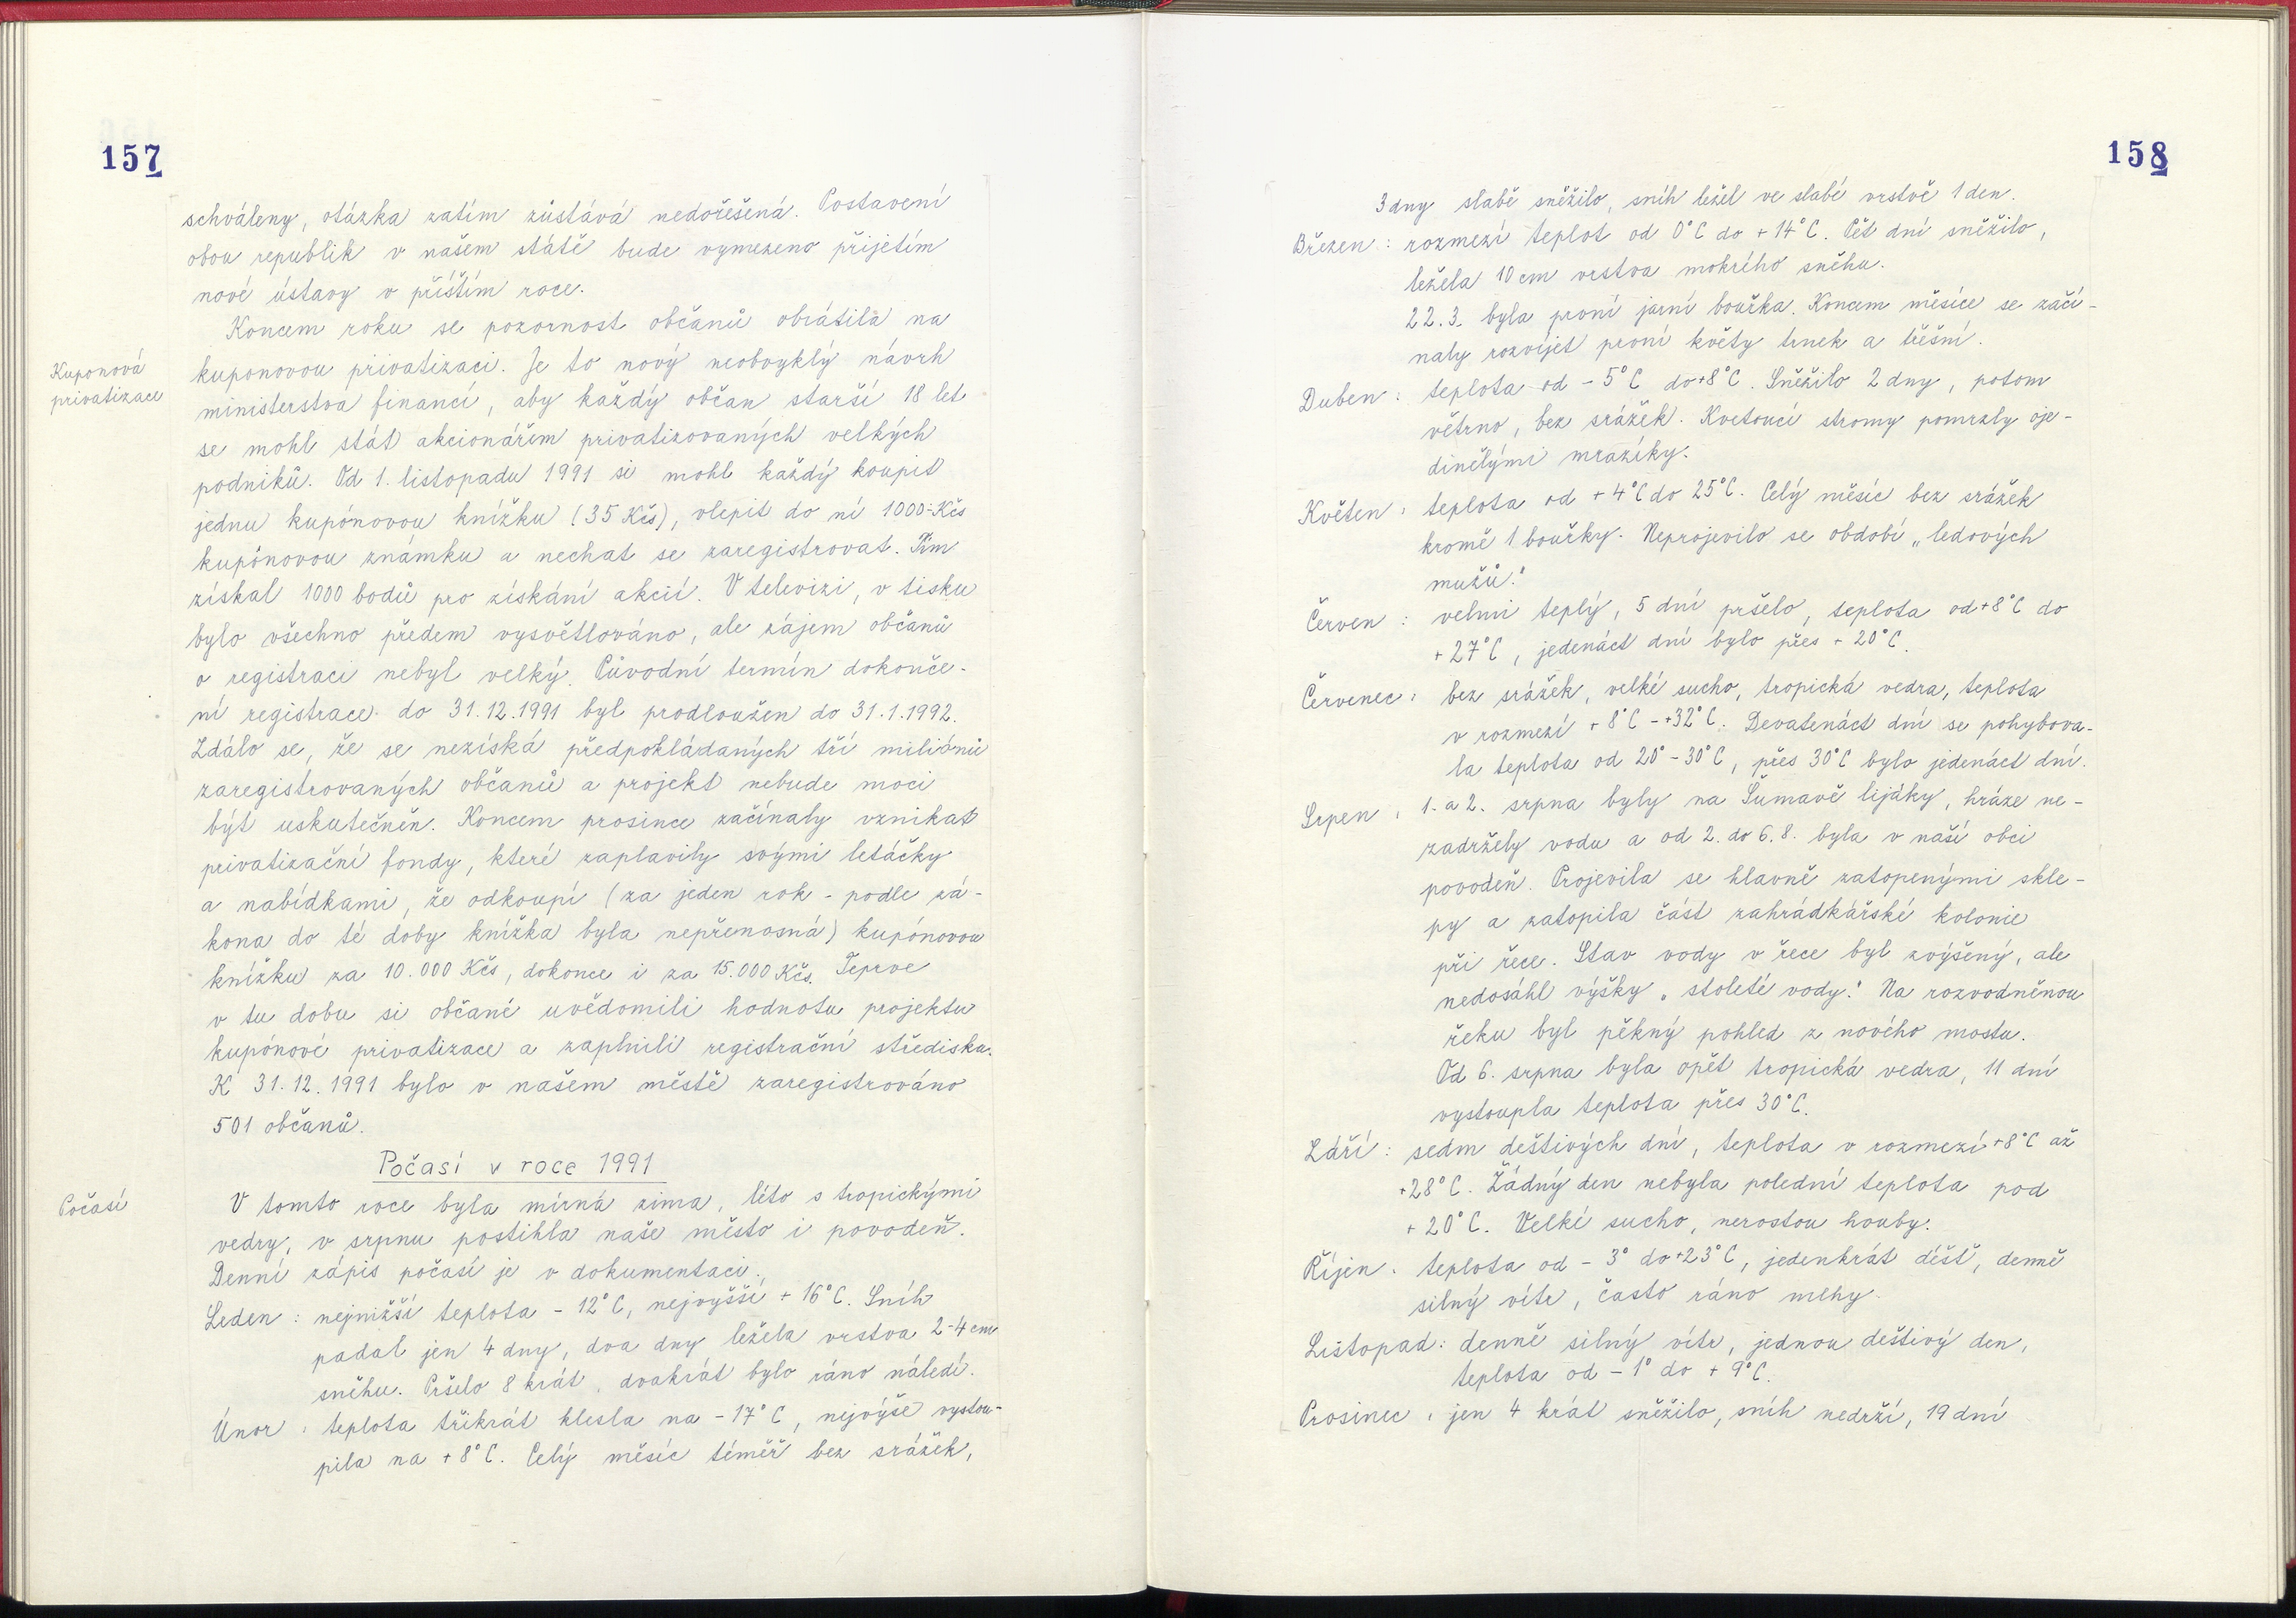 157
schváleny, otázka zatím zůstává nedořešená. Postavení
obou republik v našem státě bude vymezeno přijetím
nové ústavy v příštím roce.
Koncem roku se pozornost občanů obrátila na
Kuponová
privatizace
kuponovou privatizaci. Je to nový neobvyklý návrh
ministerstva financí, aby každý občan starší 18 let
se mohl stát akcionářem privatizovaných velkých
podniků. Od 1. listopadu 1991 si mohl každý koupit
jednu kupónovou knížku (35 Kčs), vlepit do ní 1000.-Kčs
kupónovou známku a nechat se zaregistrovat. Tím
získal 1000 bodů pro získání akcií. V televizi, v tisku
bylo všechno předem vysvětlováno, ale zájem občanů
o registraci nebyl velký. Původní termín dokonče-
ní registrace do 31.12.1991 byl prodloužen do 31.1.1992.
Zdálo se, že se nezíská předpokládaných tří miliónů
zaregistrovaných občanů a projekt nebude moci
být uskutečněn. Koncem prosince začínaly vznikat
privatizační fondy, které zaplavily svými letáčky
a nabídkami, že odkoupí (za jeden rok - podle zá-
kona do té doby knížka byla nepřenosná) kupónovou
knížku za 10.000 Kčs, dokonce i za 15.000 Kčs. Teprve
v tu dobu si občané uvědomili hodnotu projektu
kupónové privatizace a zaplnili registrační střediska.
K 31.12.1991 bylo v našem městě zaregistrováno
501 občanů.
Počasí v roce 1991
Počasí
V tomto roce byla mírná zima, léto s tropickými
vedry, v srpnu postihla naše město i povodeň.
Denní zápis počasí je v dokumentaci.
Leden : nejnižší teplota - 12°C, nejvyšší + 16°C. Sníh
padal jen 4 dny, dva dny ležela vrstva 2-4 cm
sněhu. Pršelo 8 krát, dvakrát bylo ráno náledí.
Únor : teplota třikrát klesla na - 17°C, nejvýše vystou-
pila na + 8°C. Celý měsíc téměř bez srážek,
158
3 dny slabě sněžilo, sníh ležel ve slabé vrstvě 1 den.
Březen : rozmezí teplot od 0°C do + 14°C. Pět dní sněžilo,
ležela 10 cm vrstva mokrého sněhu.
22.3. byla první jarní bouřka. Koncem měsíce se začí-
naly rozvíjet první květy trnek a třešní.
Duben : teplota od - 5°C do +8°C. Sněžilo 2 dny, potom
větrno, bez srážek. Kvetoucí stromy pomrzly oje-
dinělými mrazíky.
Květen : teplota od + 4°C do 25°C. Celý měsíc bez srážek
kromě 1 bouřky. Neprojevilo se období „ledových
mužů."
Červen : velmi teplý, 5 dní pršelo, teplota od +8°C do
+ 27°C, jedenáct dní bylo přes + 20°C.
Červenec : bez srážek, velké sucho, tropická vedra, teplota
v rozmezí + 8°C - +32°C. Devatenáct dní se pohybova-
la teplota od 20° - 30°C, přes 30°C bylo jedenáct dní.
Srpen : 1. a 2. srpna byly na Šumavě lijáky, hráze ne-
zadržely vodu a od 2. do 6.8. byla v naší obci
povodeň. Projevila se hlavně zatopenými skle-
py a zatopila část zahrádkářské kolonie
při řece. Stav vody v řece byl zvýšený, ale
nedosáhl výšky „ stoleté vody." Na rozvodněnou
řeku byl pěkný pohled z nového mostu.
Od 6. srpna byla opět tropická vedra, 11 dní
vystoupla teplota přes 30°C.
Září : sedm deštivých dní, teplota v rozmezí +8°C až
+28°C. Žádný den nebyla polední teplota pod
+ 20°C. Velké sucho, nerostou houby.
Říjen : teplota od - 3° do +23°C, jedenkrát déšť, denně
silný vítr, často ráno mlhy.
Listopad : denně silný vítr, jednou deštivý den,
teplota od - 1° do + 9°C.
Prosinec : jen 4 krát sněžilo, sníh nedrží, 19 dní